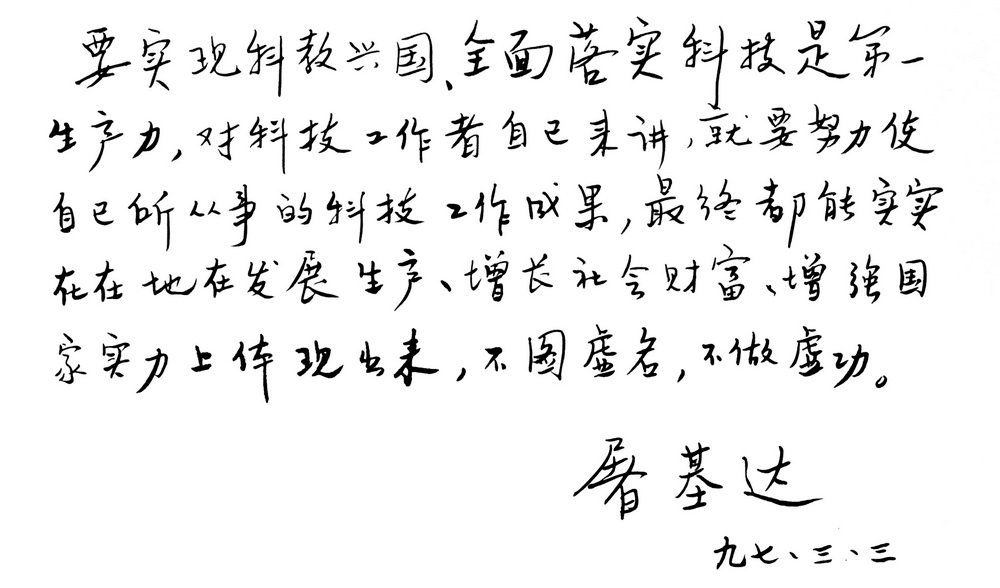 要实现科教兴国、全面落实科技是第一
生产力，对科技工作者自己来讲，就要努力使
自己所从事的科技工作成果，最终都能实实
在在地在发展生产、增长社会财富、增强国
家实力上体现出来，不图虚名，不做虚功。
屠基达
九七、三、三